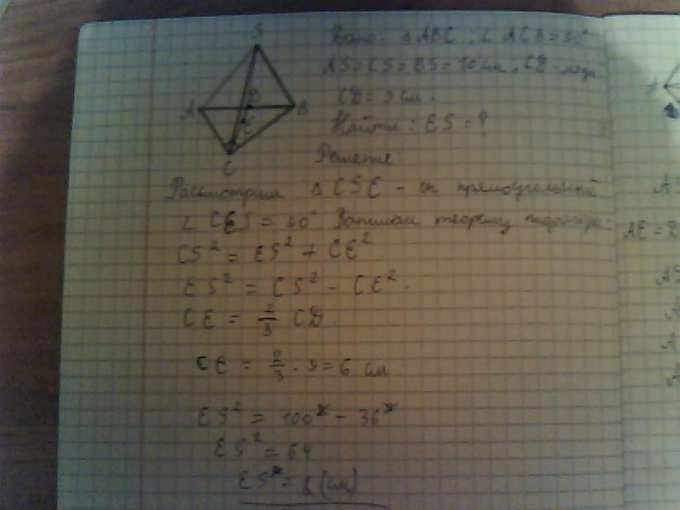 S
A
B
C
Дано: △ABC, ∠ACB = 90°
AS = CS = BS = 10 см, CD -
CD = 9 см.
Найти: ES = ?
Решение
Рассмотрим △CSE - он прямоугольный
∠CES = 90° Запишем теорему Пифагора:
CS² = ES² + CE²
ES² = CS² - CE².
CE = 2/3 CD
CE = 2/3 · 9 = 6 см
ES² = 100 - 36
ES² = 64
ES = 8 (см)
AS
AE = 2
AS
A
A
A